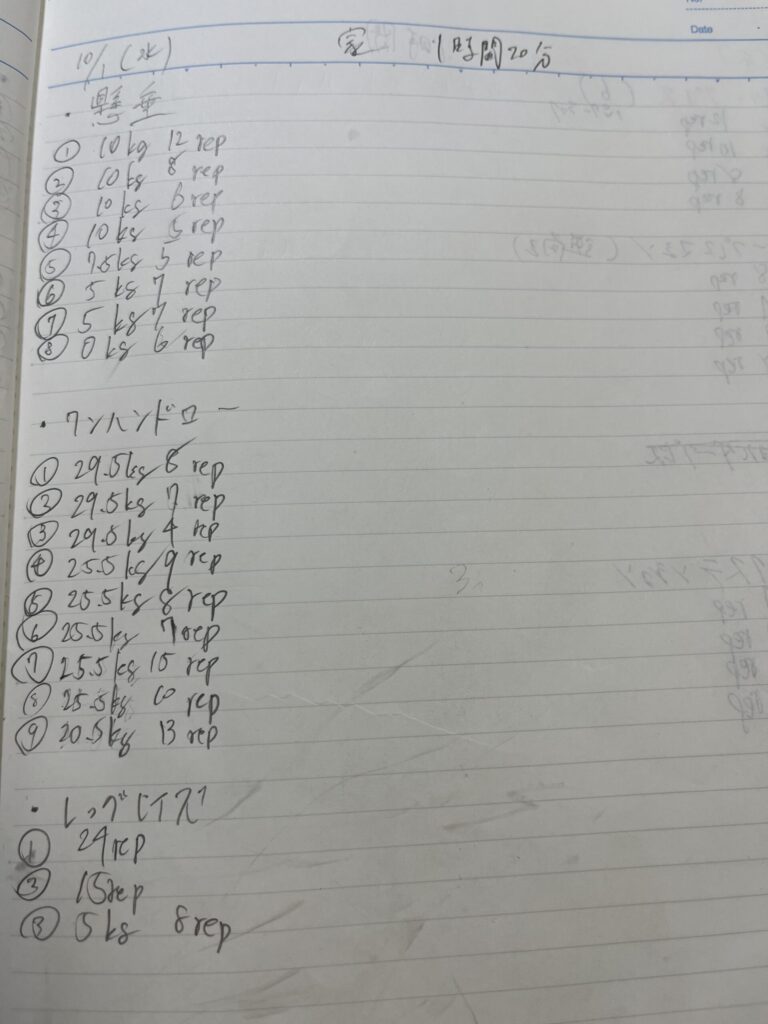 Date
10/1(水) 家 1時間20分
・懸垂
① 10kg 12 rep
② 10kg 8 rep
③ 10kg 6 rep
④ 10kg 5 rep
⑤ 7.5kg 5 rep
⑥ 5kg 7 rep
⑦ 5kg 7 rep
⑧ 0kg 6 rep
・ワンハンドロー
① 29.5kg 8 rep
② 29.5kg 7 rep
③ 29.5kg 4 rep
④ 25.5kg 9 rep
⑤ 25.5kg 8 rep
⑥ 25.5kg 7 rep
⑦ 25.5kg 15 rep
⑧ 25.5kg 10 rep
⑨ 20.5kg 13 rep
・レッグレイズ
① 24rep
② 15rep
③ 5kg 8rep